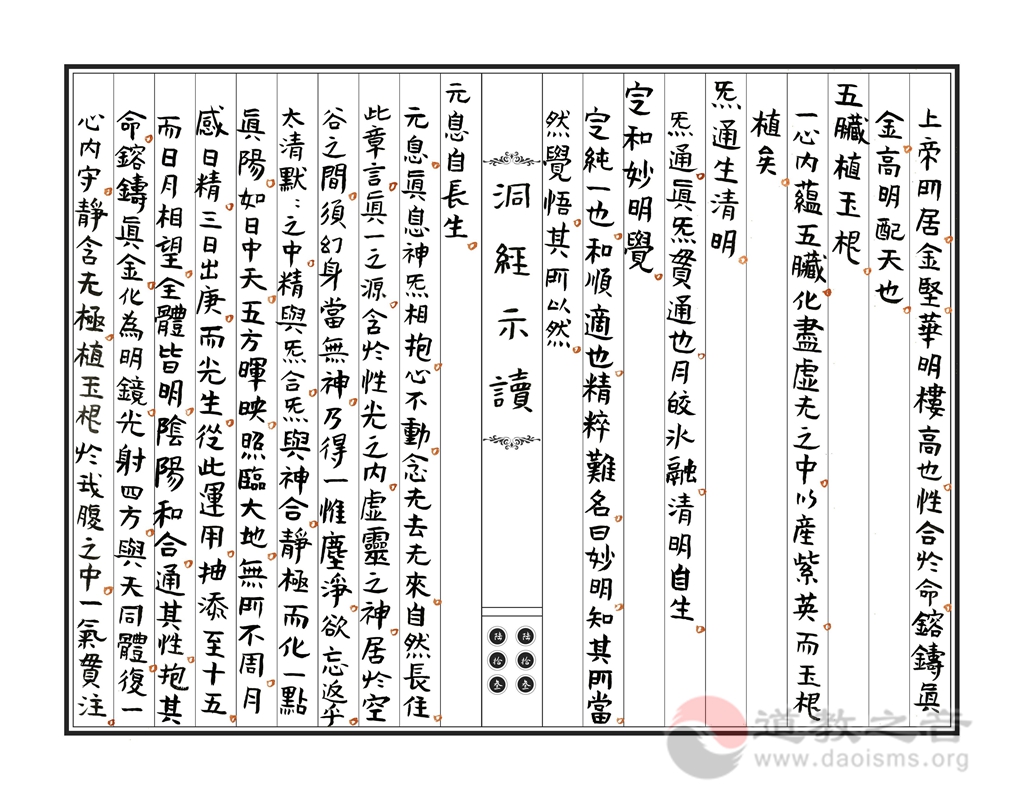 上帝所居金堅華明樓高也性合於命鎔鑄眞
金高明配天也
五臟植玉根
一心内蘊五臟化盡虛无之中以產紫英而玉根
植矣
炁通生清明
炁通眞炁貫通也月皎氷融清明自生
定和妙明覺
定純一也和順適也精粹難名曰妙明知其所當
然覺悟其所以然
洞經示讀
陸拾叁
陸拾叁
元息自長生
元息眞息神炁相抱心不動念无去无來自然長住
此章言眞一之源含於性光之内虛靈之神居於空
谷之間須幻身當無神乃得一惟塵淨欲忘返乎
太清默:之中精與炁合炁與神合靜極而化一點
眞陽如日中天五方暉映照臨大地無所不周月
感日精三日出庚而光生從此運用抽添至十五
而日月相望全體皆明陰陽和合通其性抱其
命鎔鑄眞金化為明鏡光射四方與天同體復一
心内守靜含无極植玉根於我腹之中一氣貫注
道教之音
www.daoisms.org